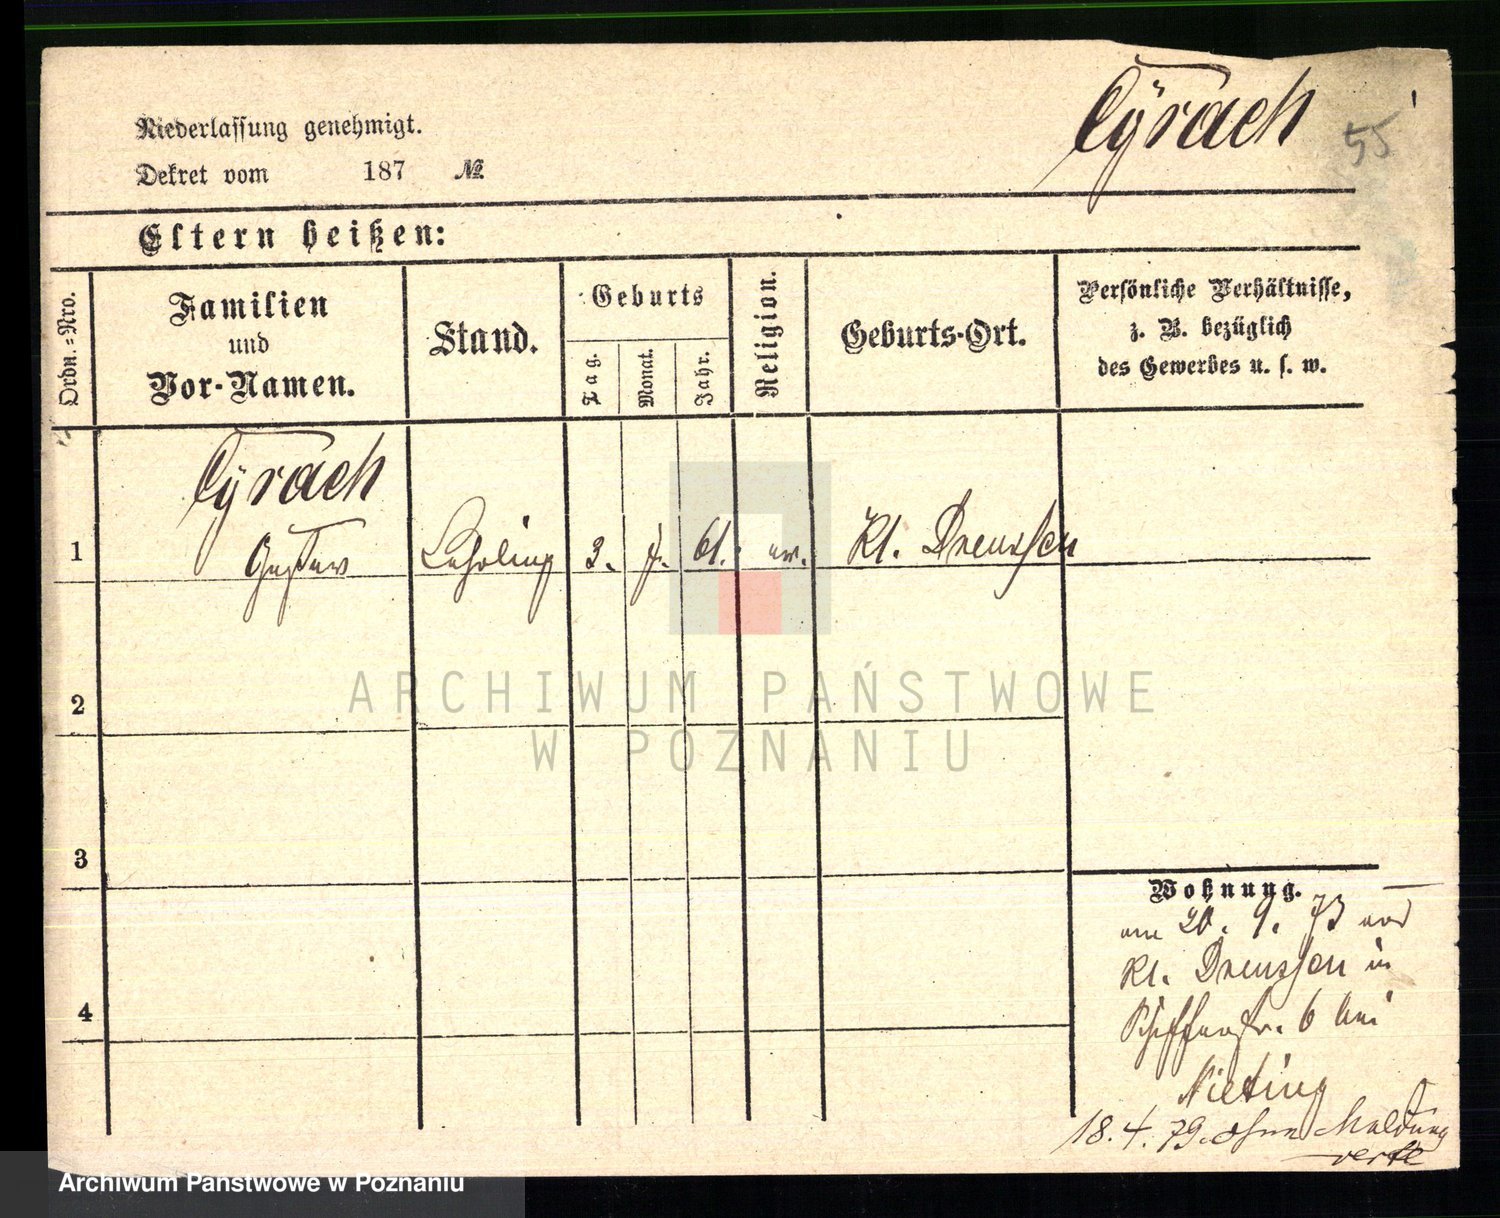 Cÿrach
55
Niederlassung genehmigt.
Dekret vom 187 №
Eltern heißen:
Ordn.=Nro.
Familien
und
Vor-Namen.
Stand.
Geburts
Tag.
Monat.
Jahr.
Religion.
Geburts-Ort.
Persönliche Verhältnisse,
z. B. bezüglich
des Gewerbes u. s. w.
Cÿrach
1 Gustav Lehrling 3. 61. ev. Kl. Dreussen
ARCHIWUM PAŃSTWOWE
W POZNANIU
2
3
4
Wohnung.
am 20. 9. 73 aus
Kl. Dreussen in
6 bei
Nieting
18. 4. 79. ohne Meldung
verte
Archiwum Państwowe w Poznaniu